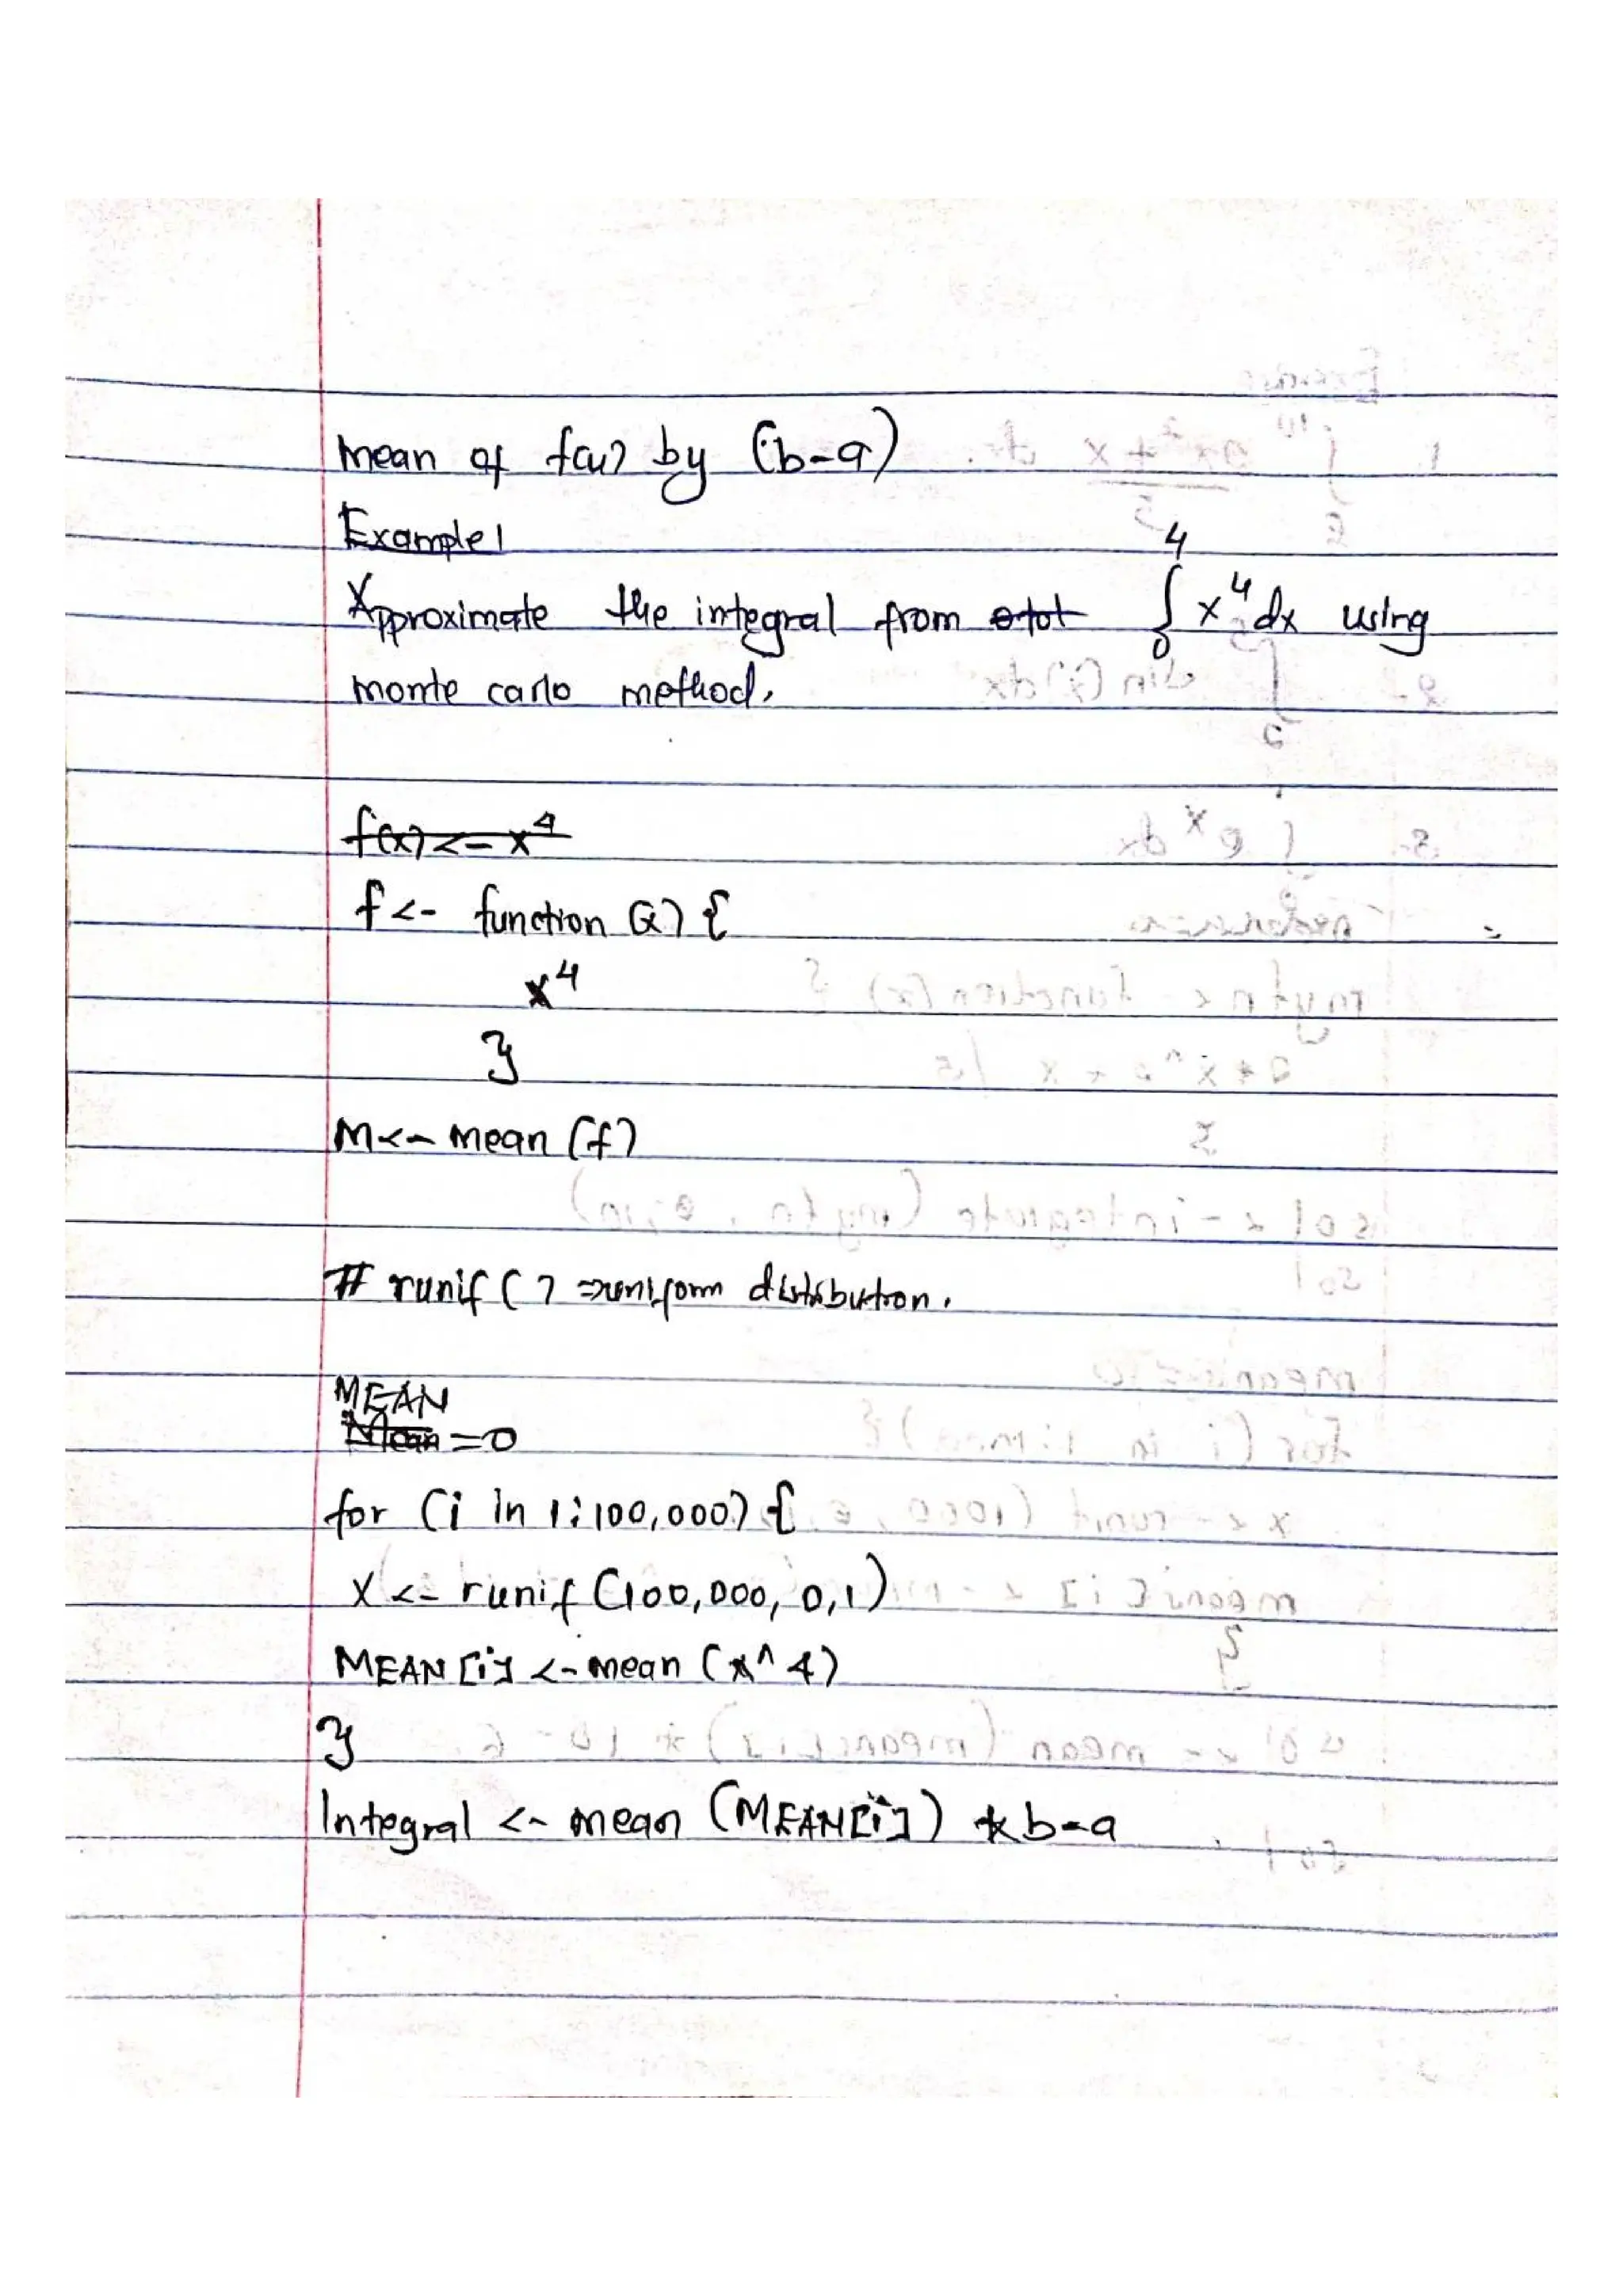 mean of f(u) by (b-a)
Example 1
Approximate the integral from 0 to 1 ∫₀⁴ x⁴ dx using
monte carlo method.
f(x) <- x⁴
f <- function (x) {
x⁴
}
M <- mean (f)
# runif ( ) => uniform distribution.
MEAN
Mean = 0
for (i in 1:100,000) {
x <- runif (100,000, 0,1)
MEAN [i] <- mean (x^4)
}
Integral <- mean (MEAN[i]) * b-a